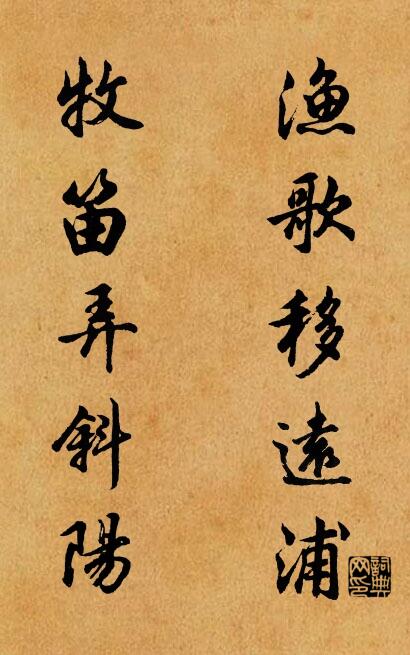 漁歌移遠浦
牧笛弄斜陽
詞典
网印